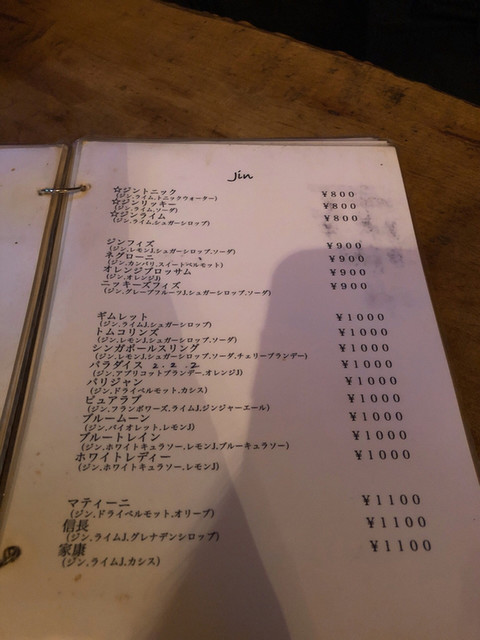 Jin
☆ジントニック ¥800
(ジン、ライム、トニックウォーター)
☆ジンリッキー ¥800
(ジン、ライム、ソーダ)
☆ジンライム ¥800
(ジン、ライム、シュガーシロップ)
ジンフィズ ¥900
(ジン、レモンJ、シュガーシロップ、ソーダ)
ネグローニ ¥900
(ジン、カンパリ、スイートベルモット)
オレンジブロッサム ¥900
(ジン、オレンジJ)
ニッキーズフィズ ¥900
(ジン、グレープフルーツJ、シュガーシロップ、ソーダ)
ギムレット ¥1000
(ジン、ライムJ、シュガーシロップ)
トムコリンズ ¥1000
(ジン、レモンJ、シュガーシロップ、ソーダ)
シンガポールスリング ¥1000
(ジン、レモンJ、シュガーシロップ、ソーダ、チェリーブランデー)
パラダイス 2.2.2 ¥1000
(ジン、アプリコットブランデー、オレンジJ)
パリジャン ¥1000
(ジン、ドライベルモット、カシス)
ピュアラブ ¥1000
(ジン、フランボワーズ、ライムJ、ジンジャーエール)
ブルームーン ¥1000
(ジン、バイオレット、レモンJ)
ブルートレイン ¥1000
(ジン、ホワイトキュラソー、レモンJ、ブルーキュラソー)
ホワイトレディー ¥1000
(ジン、ホワイトキュラソー、レモンJ)
マティーニ ¥1100
(ジン、ドライベルモット、オリーブ)
信長 ¥1100
(ジン、ライムJ、グレナデンシロップ)
家康 ¥1100
(ジン、ライムJ、カシス)